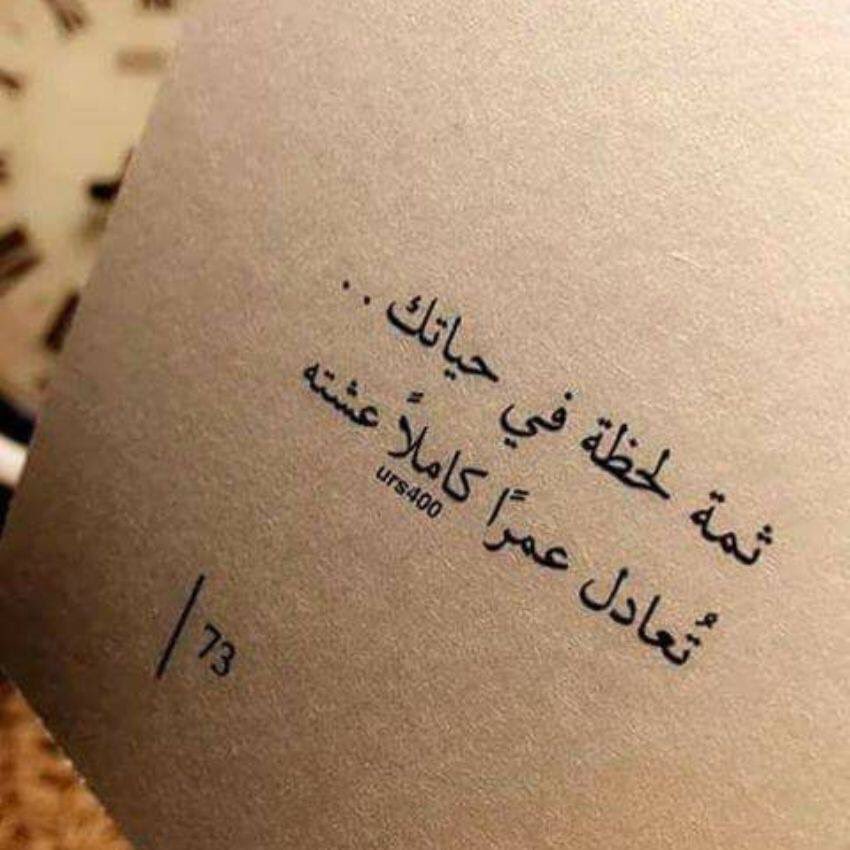 ثمة لحظة في حياتك ..
تُعادل عمرًا كاملاً عشته
urs400
73